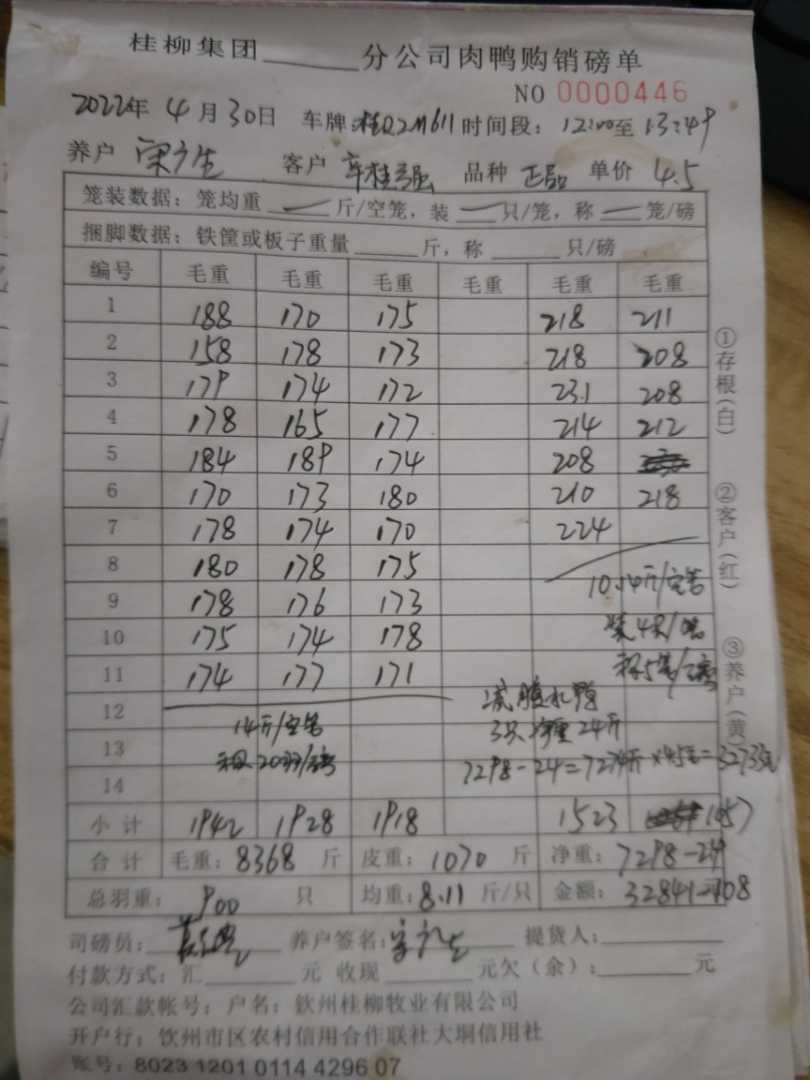 桂柳集团______分公司肉鸭购销磅单
NO 0000446
2022年 4月30日 车牌:桂Q2M611 时间段: 12:00至13:49
养户 宋广生 客户 车桂强 品种 正品 单价 4.5
笼装数据: 笼均重 — 斤/空笼, 装 — 只/笼, 称 — 笼/磅
捆脚数据: 铁筐或板子重量______斤, 称______只/磅
编号 毛重 毛重 毛重 毛重 毛重 毛重
1 188 170 175 218 211
2 158 178 173 218 208
3 179 174 172 231 208
4 178 165 177 214 212
5 184 189 174 208
6 170 173 180 210 218
7 178 174 170 224
8 180 178 175
9 178 176 173 10.14斤/空笼
10 175 174 178 装4只/笼
11 174 177 171 称5笼/磅
12 减腹水鸭
14斤/空笼 3只净重24斤
13
称20羽/磅 7298-24=7274斤×4.5元=32733元
14
小计 1942 1928 1918 1523 1057
合计 毛重: 8368 斤 皮重: 1070 斤 净重: 7298-24
总羽重: 900 只 均重: 8.11 斤/只 金额: 32841-108
司磅员: 养户签名: 宋广生 提货人:
付款方式: 汇______元 收现______元欠(余):______元
公司汇款帐号: 户名: 钦州桂柳牧业有限公司
开户行: 钦州市区农村信用合作联社大垌信用社
账号: 8023 1201 0114 4296 07
①存根(白)
②客户(红)
③养户(黄